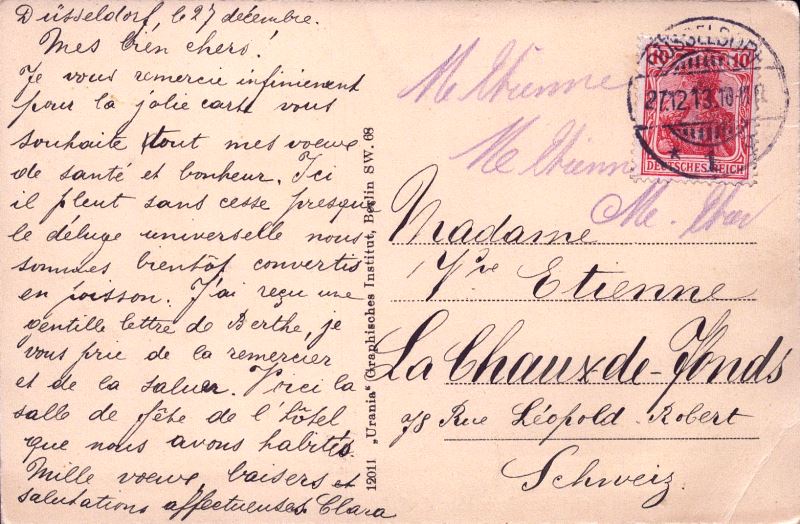 Düsseldorf, le 27 décembre.
Mes bien chers!
Je vous remercie infiniement
pour la jolie carte vous
souhaite tout mes voeux
de santé et bonheur. Ici
il pleut sans cesse presque
le déluge universelle nous
sommes bientôt convertis
en poisson. J'ai reçu une
gentille lettre de Berthe, je
vous prie de la remercier
et de la saluer. Voici la
salle de fête de l'hôtel
que nous avons habités.
Mille voeux, baisers et
salutations affectueuses. Clara
12011 „Urania“ Graphisches Institut, Berlin SW. 68
DÜSSELDORF
27.12.13. 10-11
* 1
10 10
DEUTSCHES REICH
Me Etienne
Me Etienne
Me.
Madame
Vve Etienne
La Chaux-de-Fonds
78 Rue Léopold-Robert
Schweiz.